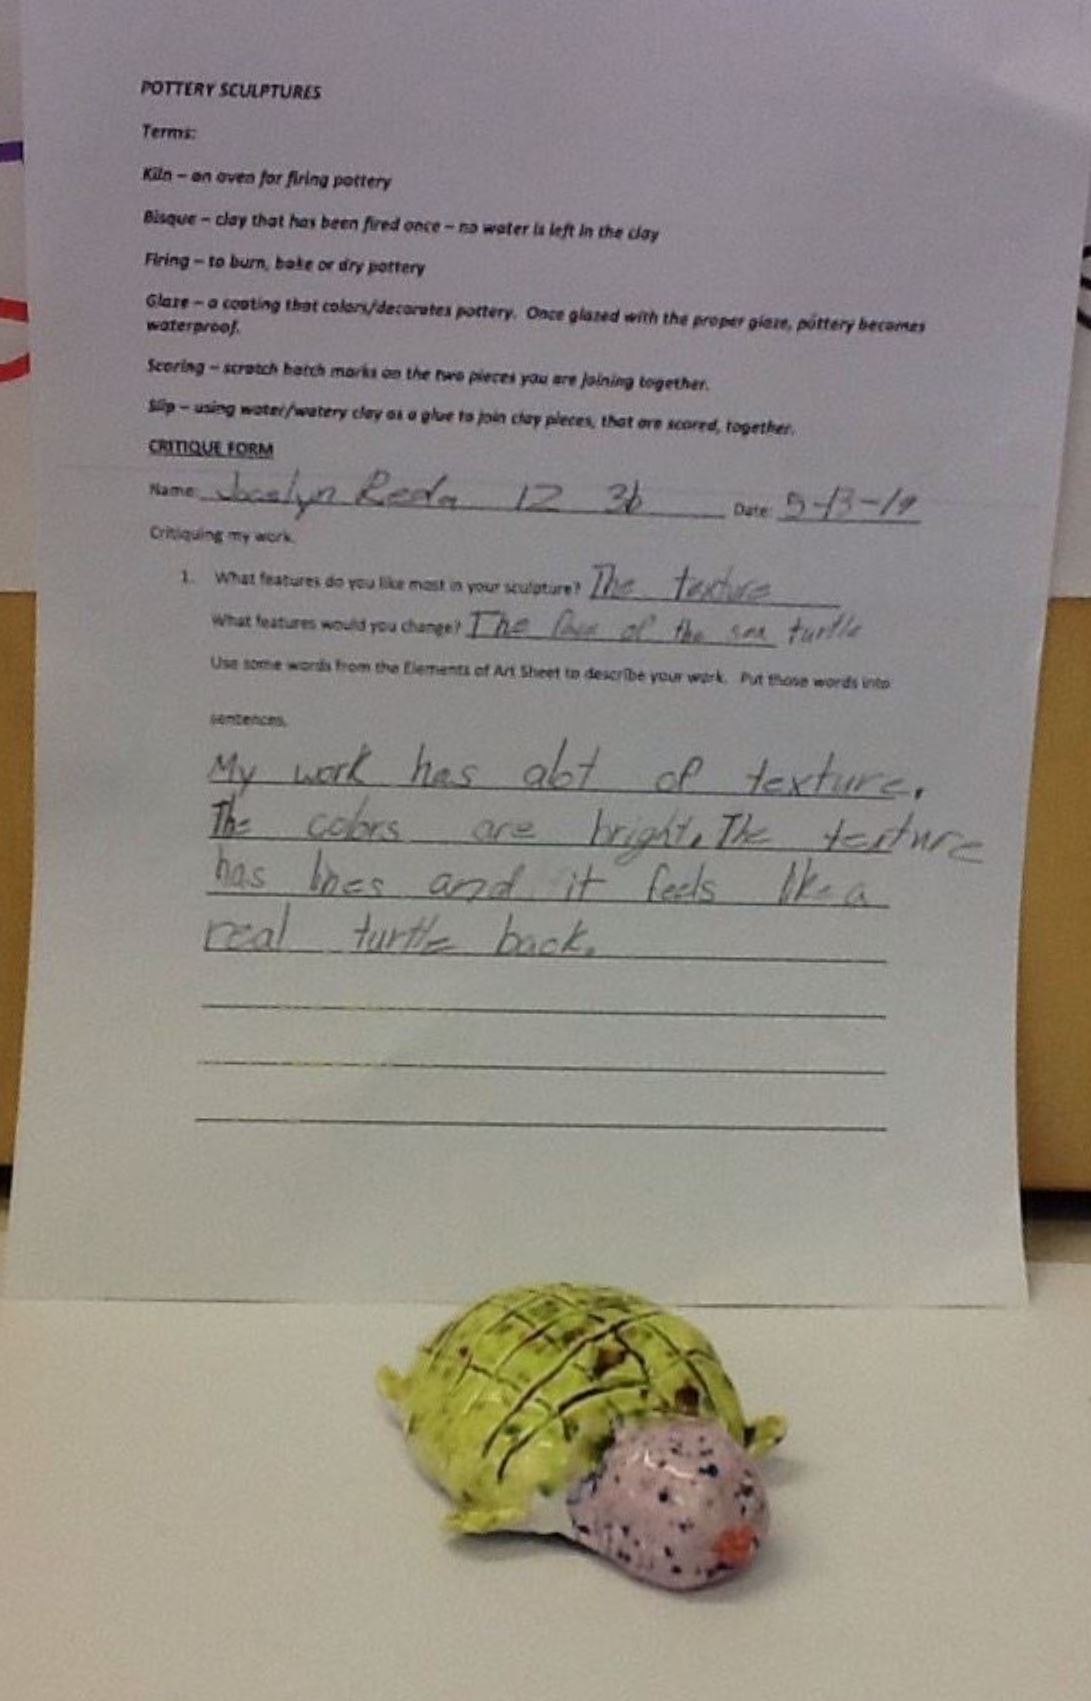 POTTERY SCULPTURES
Terms:
Kiln – an oven for firing pottery
Bisque – clay that has been fired once – no water is left in the clay
Firing – to burn, bake or dry pottery
Glaze – a coating that colors/decorates pottery. Once glazed with the proper glaze, pottery becomes
waterproof.
Scoring – scratch hatch marks on the two pieces you are joining together.
Slip – using water/watery clay as a glue to join clay pieces, that are scored, together.
CRITIQUE FORM
Name: Jocelyn Reda 12 3b Date: 5-13-19
Critiquing my work.
1. What features do you like most in your sculpture? The texture
What features would you change? The face of the sea turtle
Use some words from the Elements of Art Sheet to describe your work. Put those words into
sentences.
My work has alot of texture.
The colors are bright. The texture
has lines and it feels like a
real turtle back.